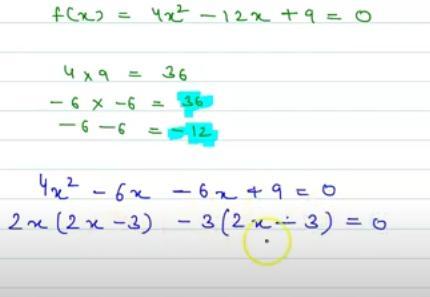 f(x) = 4x² - 12x + 9 = 0
4 × 9 = 36
- 6 × - 6 = 36
- 6 - 6 = - 12
4x² - 6x - 6x + 9 = 0
2x (2x - 3) - 3 (2x - 3) = 0